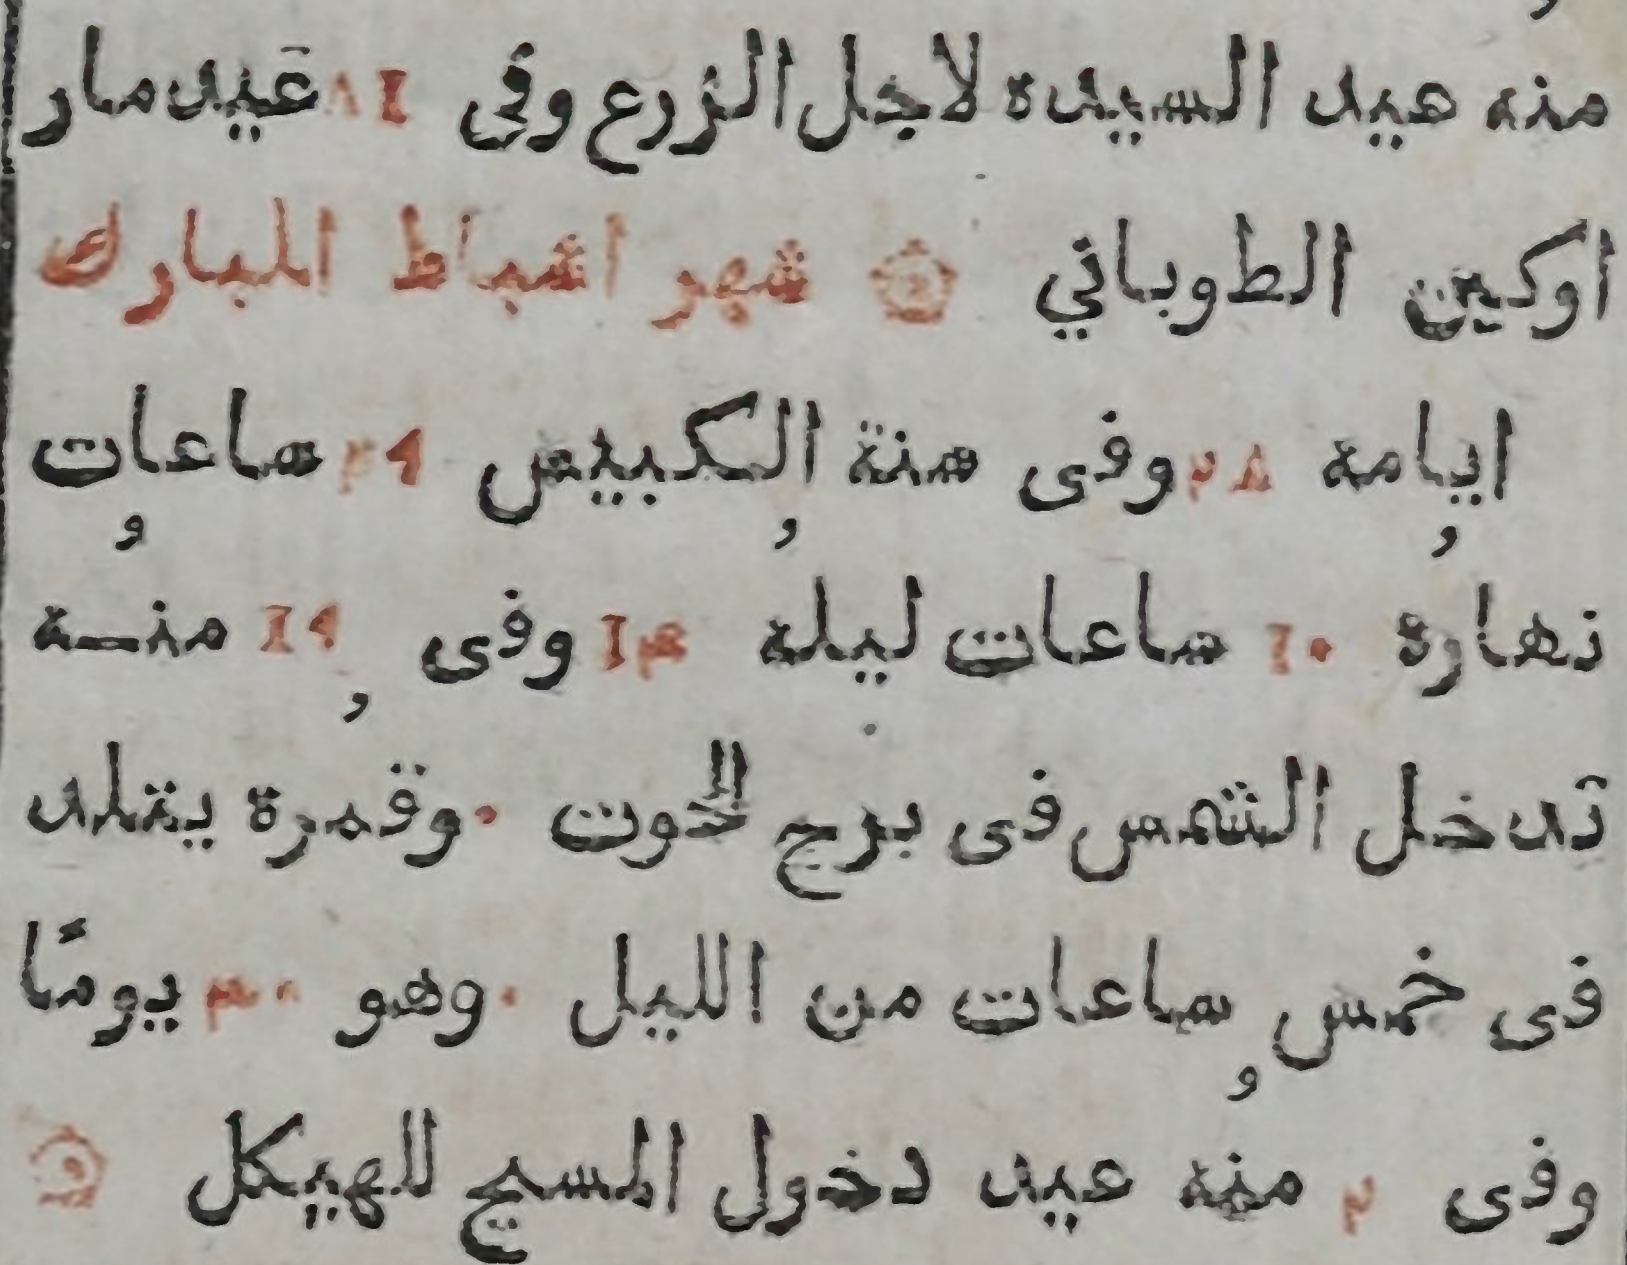 منه عيد السيده لاجل الزرع وفى ١٨ عيد مار
اوكين الطوباني شهر اشباط المبارك
ايامه ٢٨ وفى سنة الكبيس ٢٩ ساعات
نهاره ١٠ ساعات ليله ١٤ وفى ١٩ منه
تدخل الشمس فى برج الحوت ٠ وقمرة يتلد
فى خمس ساعات من الليل ٠ وهو ٣٠ يومًا
وفى ٢ منه عيد دخول المسيح للهيكل